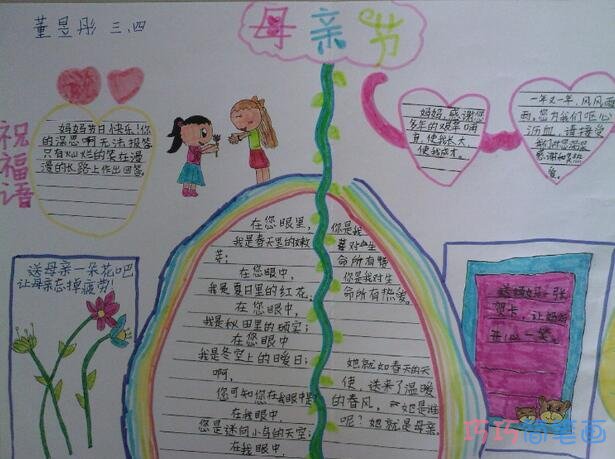 董昱彤 三、四
母亲节
祝福语
妈妈节日快乐！您
的深恩啊无法报答
只有灿烂的笑在漫
漫的长路上作出回答。
妈妈，感谢您
多年的艰辛哺
育，使我长大
使我成才。
一年又一年，风风雨
雨，您为我们呕心
沥血，请接受
我们对您深深
感谢和
爱。
送母亲一朵花吧
让母亲忘掉疲劳！
在您眼里，
我是春天里的嫩
芽；
在您眼中，
我是夏日里的红花；
在您眼中，
我是秋田里的硕实；
在您眼中
我是冬空上的暖日；
啊，
您可知您在我眼中里
在我眼中
您是迷向小鸟的天空；
在我眼中
你是我
对生
命所有
你是我对生
命所有热爱。
她就如春天的天
使，送来了温暖
的春风，她是谁
呢？她就是母亲。
送妈妈一张
贺卡，让妈妈
开心一笑。
巧巧简笔画